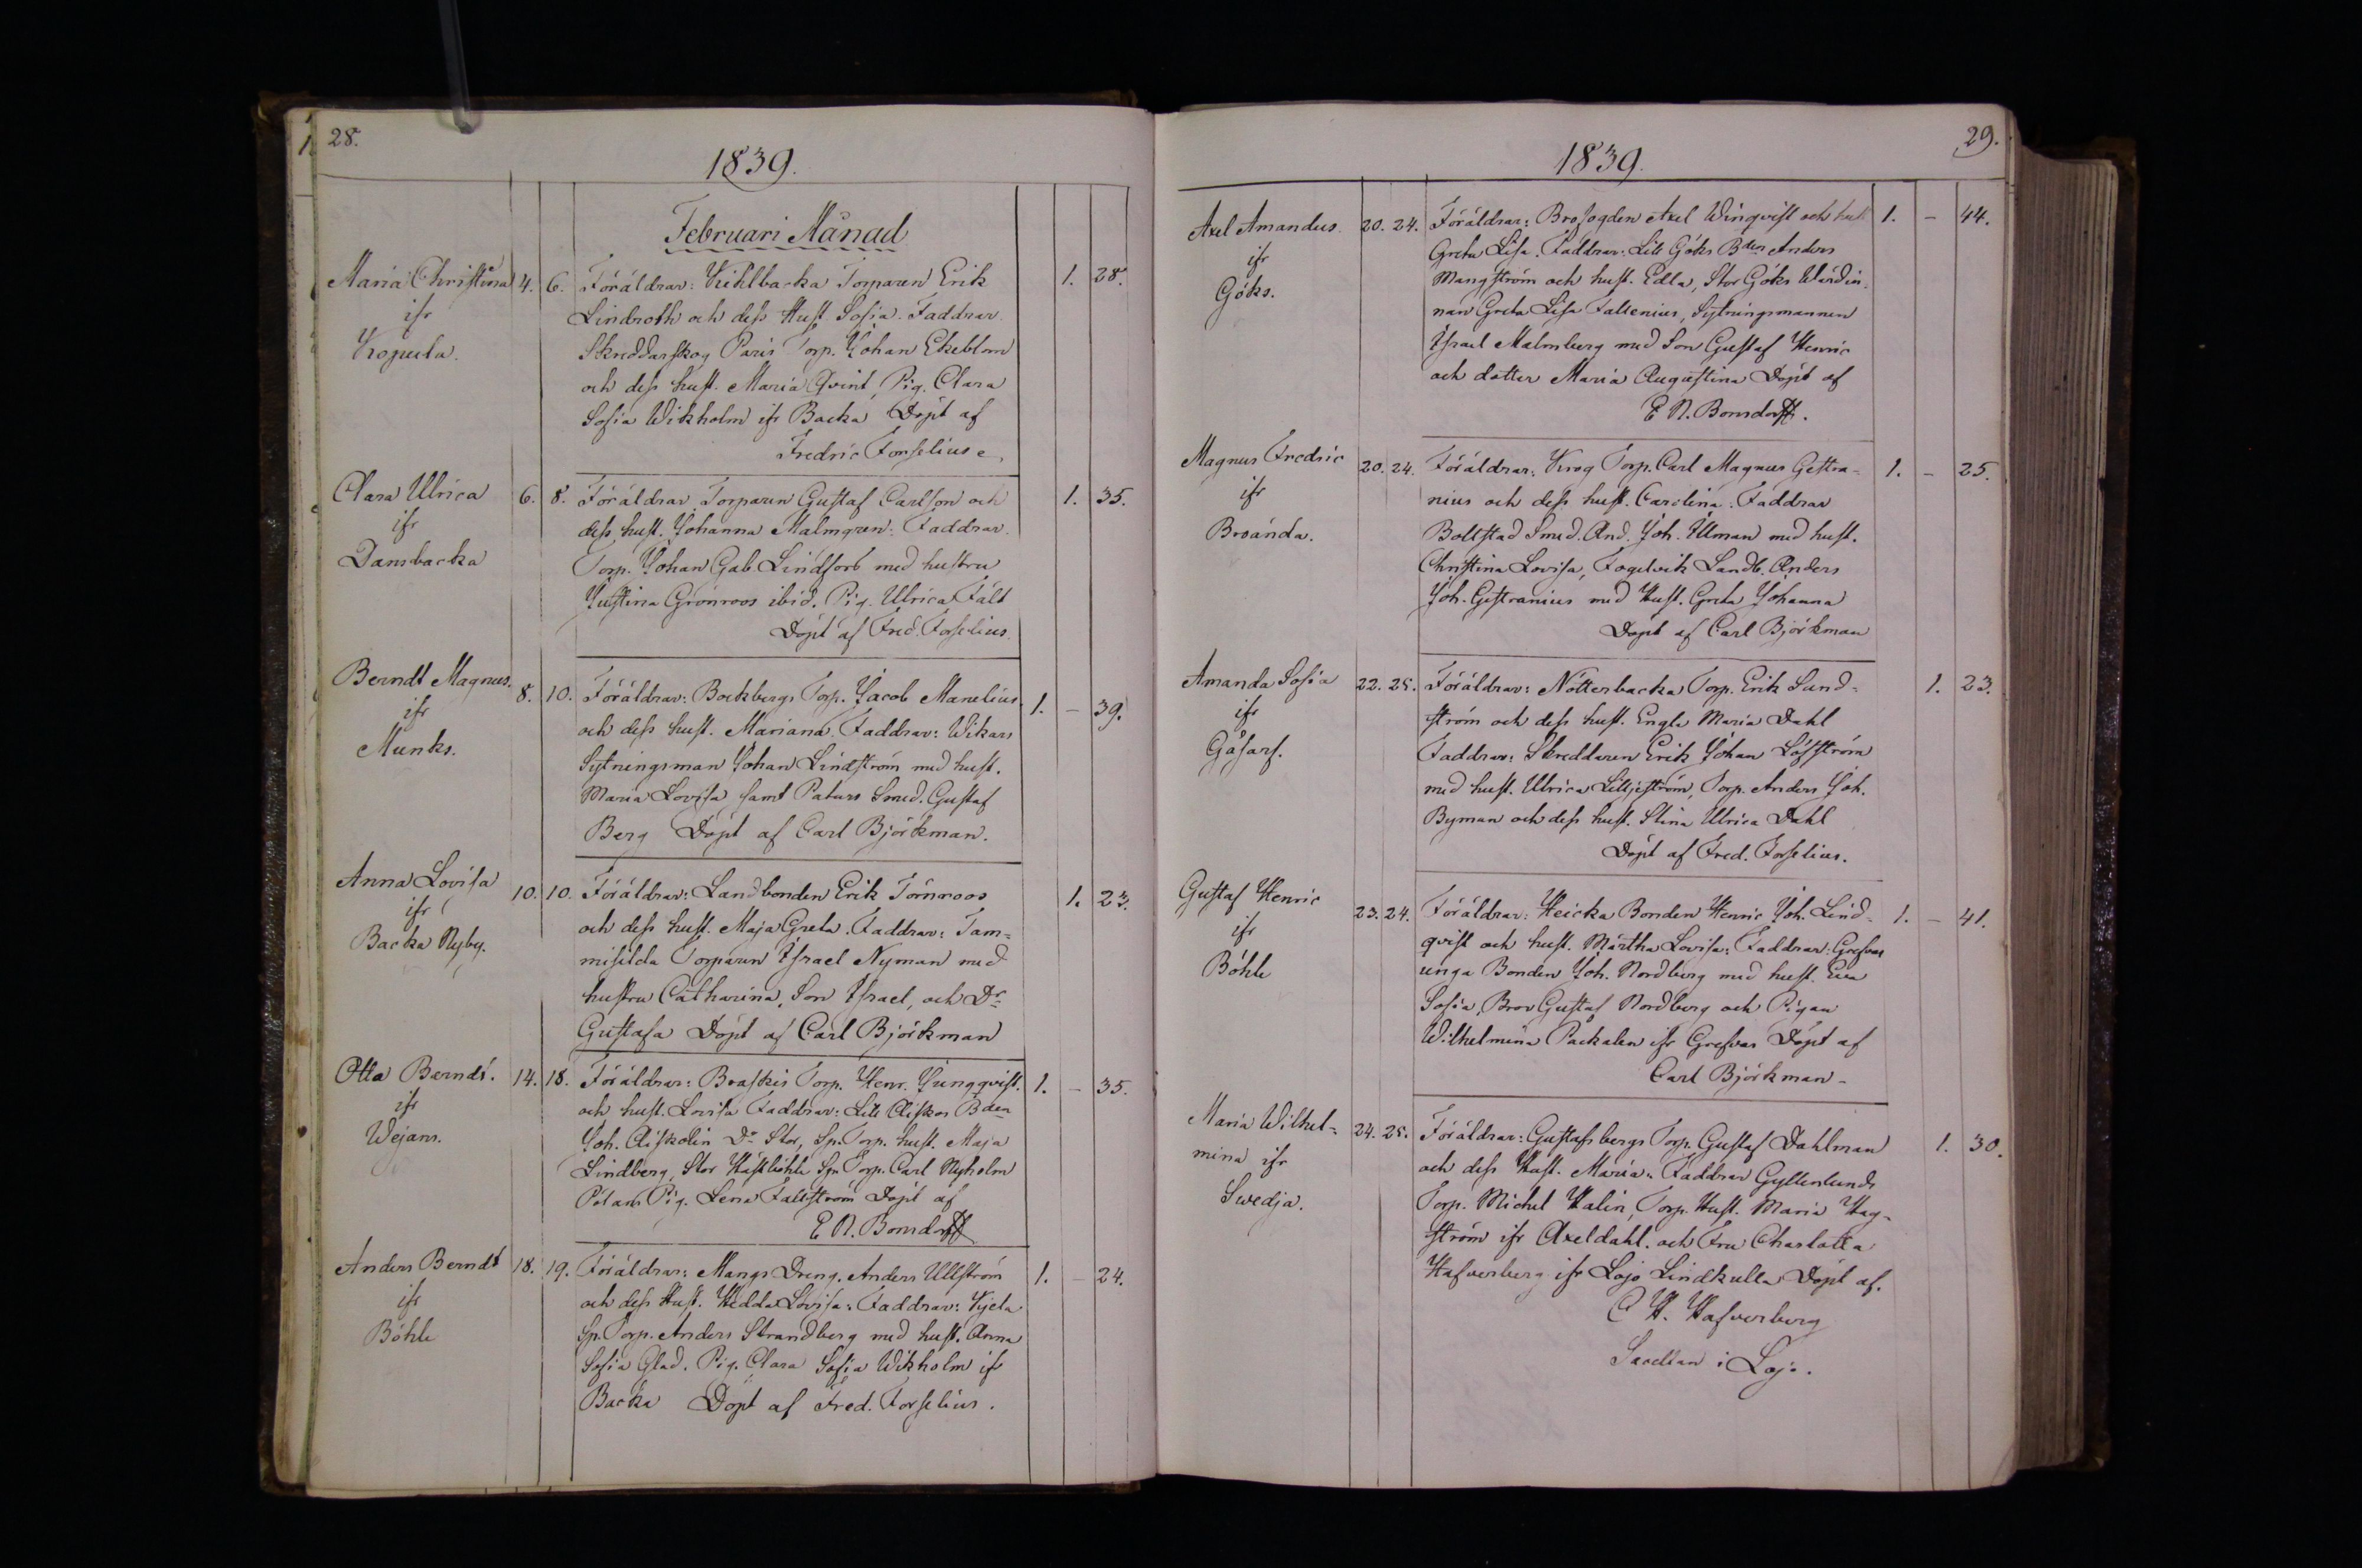 28.
1839.
Februari Månad
Maria Christina 4. 6. Föräldrar: Kihlbacka Torparen Erik 1. 28.
ifr Lindroth och dess Hust. Sofia. Faddrar.
Kopula. Skreddarskog Paris Torp. Johan Ekeblom
och dess hust. Maria Qvint, Pig. Clara
Sofia Wikholm ifr Backa Döpt af
Fredric Forselius
Clara Ulrica 6. 8. Föräldrar Torparen Gustaf Carlson och 1. 35.
ifr dess hust. Johanna Malmgren. Faddrar.
Dansbacka Torp. Johan Gab. Lindfors med hustru
Justina Grönroos ibid. Pig. Ulrica Fält
Döpt af Fred. Forselius.
Berndt Magnus. 8. 10. Föräldrar: Bockbergs Torp. Jacob Manelius 1. – 39.
ifr och dess hust. Mariana. Faddrar: Wikars
Munks. Sytningsman Johan Lindström med hust.
Maria Lovisa samt Paturs Smed. Gustaf
Berg Döpt af Carl Björkman.
Anna Lovisa 10. 10. Föräldrar: Landbonden Erik Törnroos 1. 23.
ifr och dess hust. Maja Greta. Faddrar: Tam=
Backa Nyby. misilda Torparen Israel Nyman med
hustru Catharina, Son Israel, och Dr
Gustafa Döpt af Carl Björkman
Otto Berndt. 14. 18. Föräldrar: Braskis Torp. Henr. Jungqvist. 1. – 35.
ifr och hust. Lovisa Faddrar: Lill Aiskos Bden
Wejans. Joh. Aiskolin Do Stor, Sp. Torp. hust. Maja
Lindberg, Stor Hästböhle Sp. Torp. Carl Nyholm
Pölans Pig. Lena Fallström Döpt af
E N. Bonsdorff
Anders Berndt 18. 19. Föräldrar: Mangs Dreng. Anders Ullström 1. – 24.
ifr och dess Hust. Hedda Lovisa: Faddrar: Kjela
Böhle Sp. Torp. Anders Strandberg med hust. Anna
Sofia Glad. Pig. Clara Sofia Wikholm ifr
Backa Döpt af Fred. Forselius.
29.
1839.
Axel Amandus 20. 24. Föräldrar: Brofogden Axel Winqvist och hust 1. – 44.
ifr Greta Lisa. Faddrar: Lill Göks Bden Anders
Göks. Mangström och hust. Edla, Stor Göks Wärdin=
nan Greta Lisa Fallenius, Sytningsmannen
Israel Malmberg med Son Gustaf Henric
och dotter Maria Augustina Döpt af
E N. Bonsdorff.
Magnus Fredric 20. 24. Föräldrar: Krog Torp. Carl Magnus Gestra= 1. – 25.
ifr nius och dess hust. Carolina. Faddrar
Broända. Bollstad Smed. And. Joh. Ulman med hust.
Christina Lovisa, Fogelvik Landb. Anders
Joh. Gestranius med Hust. Greta Johanna
Döpt af Carl Björkman
Amanda Sofia 22. 25. Föräldrar: Nötterbacka Torp. Erik Sund= 1. 23.
ifr ström och dess hust. Engla Maria Dahl
Gåsars. Faddrar: Skreddaren Erik Johan Löfström
med hust. Ulrica Lilljeström, Torp. Anders Joh.
Byman och dess hust. Stina Ulrica Dahl
Döpt af Fred. Forselius.
Gustaf Henric 23. 24. Föräldrar: Heicka Bonden Henric Joh. Lind= 1. – 41.
ifr qvist och hust. Märtha Lovisa: Faddrar: Grefvas
Böhle unga Bonden Joh. Nordberg med hust. Eva
Sofia, Bror Gustaf Nordberg och Pigan
Wilhelmina Packalen ifr Grefvas Döpt af
Carl Björkman
Maria Wilhel= 24. 25. Föräldrar: Gustafsbergs Torp. Gustaf Dahlman 1. 30.
mina ifr och dess Hust. Maria: Faddrar Gyllenlunds
Swedja. Torp. Michel Halin, Torp. Hust. Maria Hag=
ström ifr Axeldahl. och Fru Charlotta
Hafverberg ifr Lojo Lindkulla Döpt af.
C H. Hafverberg
Sacellan i Lojo.